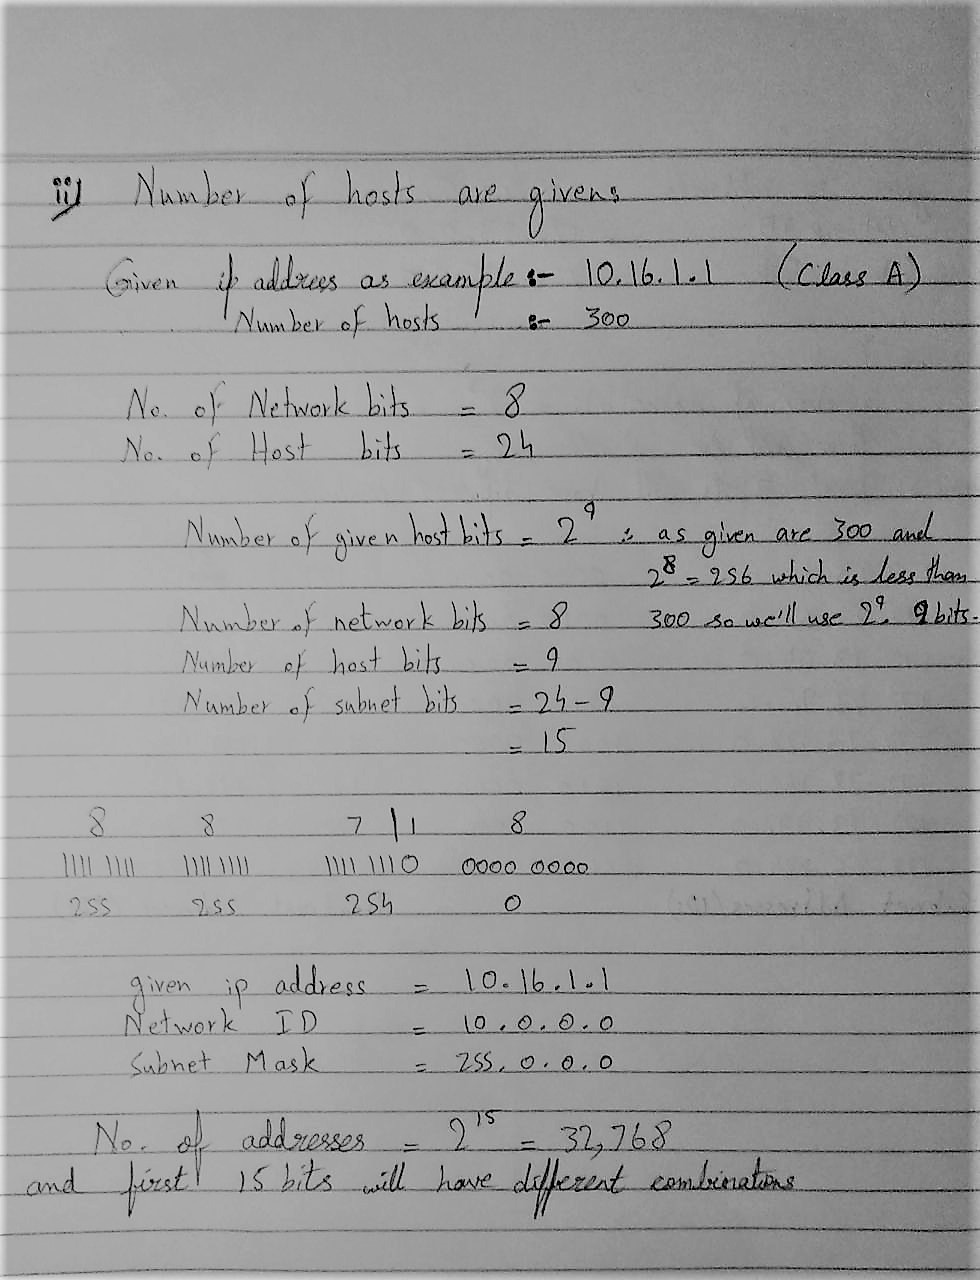 ii) Number of hosts are givens
Given ip addrees as example :- 10.16.1.1 (Class A)
Number of hosts :- 300
No. of Network bits = 8
No. of Host bits = 24
Number of given host bits = 2⁹ ∵ as given are 300 and
2⁸ = 256 which is less than
Number of network bits = 8 300 so we'll use 2⁹. 9 bits.
Number of host bits = 9
Number of subnet bits = 24-9
= 15
8 8 7 | 1 8
1111 1111 1111 1111 1111 1110 0000 0000
255 255 254 0
given ip address = 10.16.1.1
Network ID = 10.0.0.0
Subnet Mask = 255.0.0.0
No. of addresses = 2¹⁵ = 32,768
and first 15 bits will have different combinations